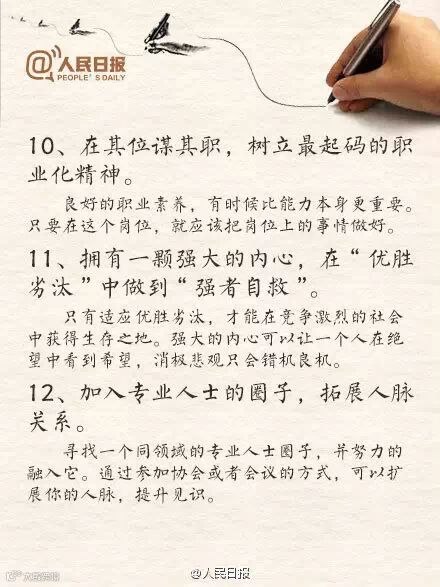 @人民日报
PEOPLE'S DAILY
10、在其位谋其职，树立最起码的职
业化精神。
良好的职业素养，有时候比能力本身更重要。
只要在这个岗位，就应该把岗位上的事情做好。
11、拥有一颗强大的内心，在“优胜
劣汰”中做到“强者自救”。
只有适应优胜劣汰，才能在竞争激烈的社会
中获得生存之地。强大的内心可以让一个人在绝
望中看到希望，消极悲观只会错机良机。
12、加入专业人士的圈子，拓展人脉
关系。
寻找一个同领域的专业人士圈子，并努力的
融入它。通过参加协会或者会议的方式，可以扩
展你的人脉，提升见识。
@人民日报